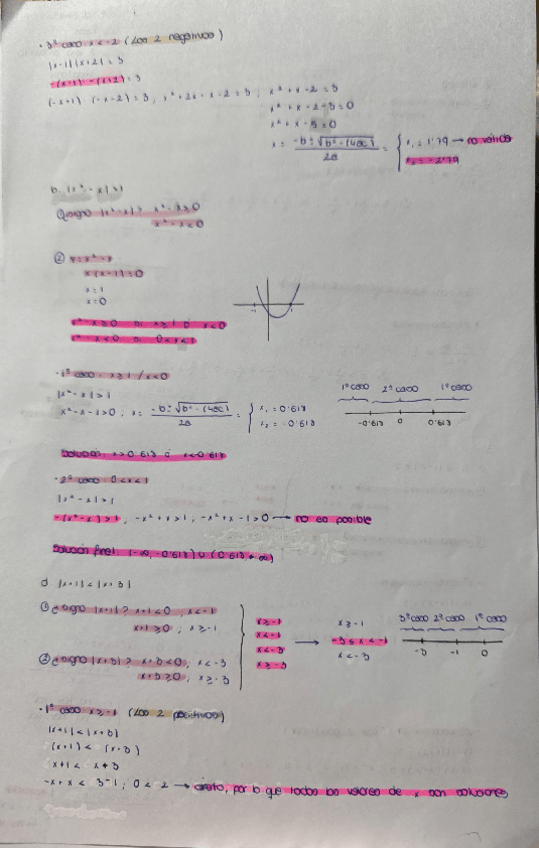 · 3º caso x < -2 (Los 2 negativos)
|x-1||x+2| = 3
-(x-1) · -(x+2) = 3
(-x+1) · (-x-2) = 3 ; x² + 2x - x - 2 = 3 ; x² + x - 2 = 3
x² + x - 2 - 3 = 0
x² + x - 5 = 0
x = -b ± √b² - (4ac) / 2a = { x₁ = 1'79 → no válida
x₂ = -2'79
b. |x² - x| > 1
① signo |x² - x| ? x² - x ≥ 0
x² - x < 0
② y = x² - x
x(x-1) = 0
x = 1
x = 0
-1 1
x² - x ≥ 0 si x ≥ 1 ó x < 0
x² - x < 0 si 0 < x < 1
· 1º caso x ≥ 1 / x < 0
|x² - x| > 1
x² - x - 1 > 0 ; x = -b ± √b² - (4ac) / 2a = { x₁ = 0'618
x₂ = -0'618
1º caso 2º caso 1º caso
-0'618 0 0'618
Solución: x > 0'618 ó x < -0'618
· 2º caso 0 < x < 1
|x² - x| > 1
-(x² - x) > 1 ; -x² + x > 1 ; -x² + x - 1 > 0 → no es posible
Solución final: (-∞, -0'618) ∪ (0'618, +∞)
|x+1| < |x+3|
① signo |x+1| ? x+1 < 0 ; x < -1
x+1 ≥ 0 ; x ≥ -1
② signo |x+3| ? x+3 < 0 ; x < -3
x+3 ≥ 0 ; x ≥ -3
x ≥ -1
x < -1
x < -3
x ≥ -3
→ x ≥ -1
-3 ≤ x < -1
x < -3
3º caso 2º caso 1º caso
-3 -1 0
· 1º caso x ≥ -1 (Los 2 positivos)
|x+1| < |x+3|
(x+1) < (x+3)
x+1 < x+3
-x + x < 3 - 1 ; 0 < 2 → cierto, por lo que todos los valores de x son soluciones